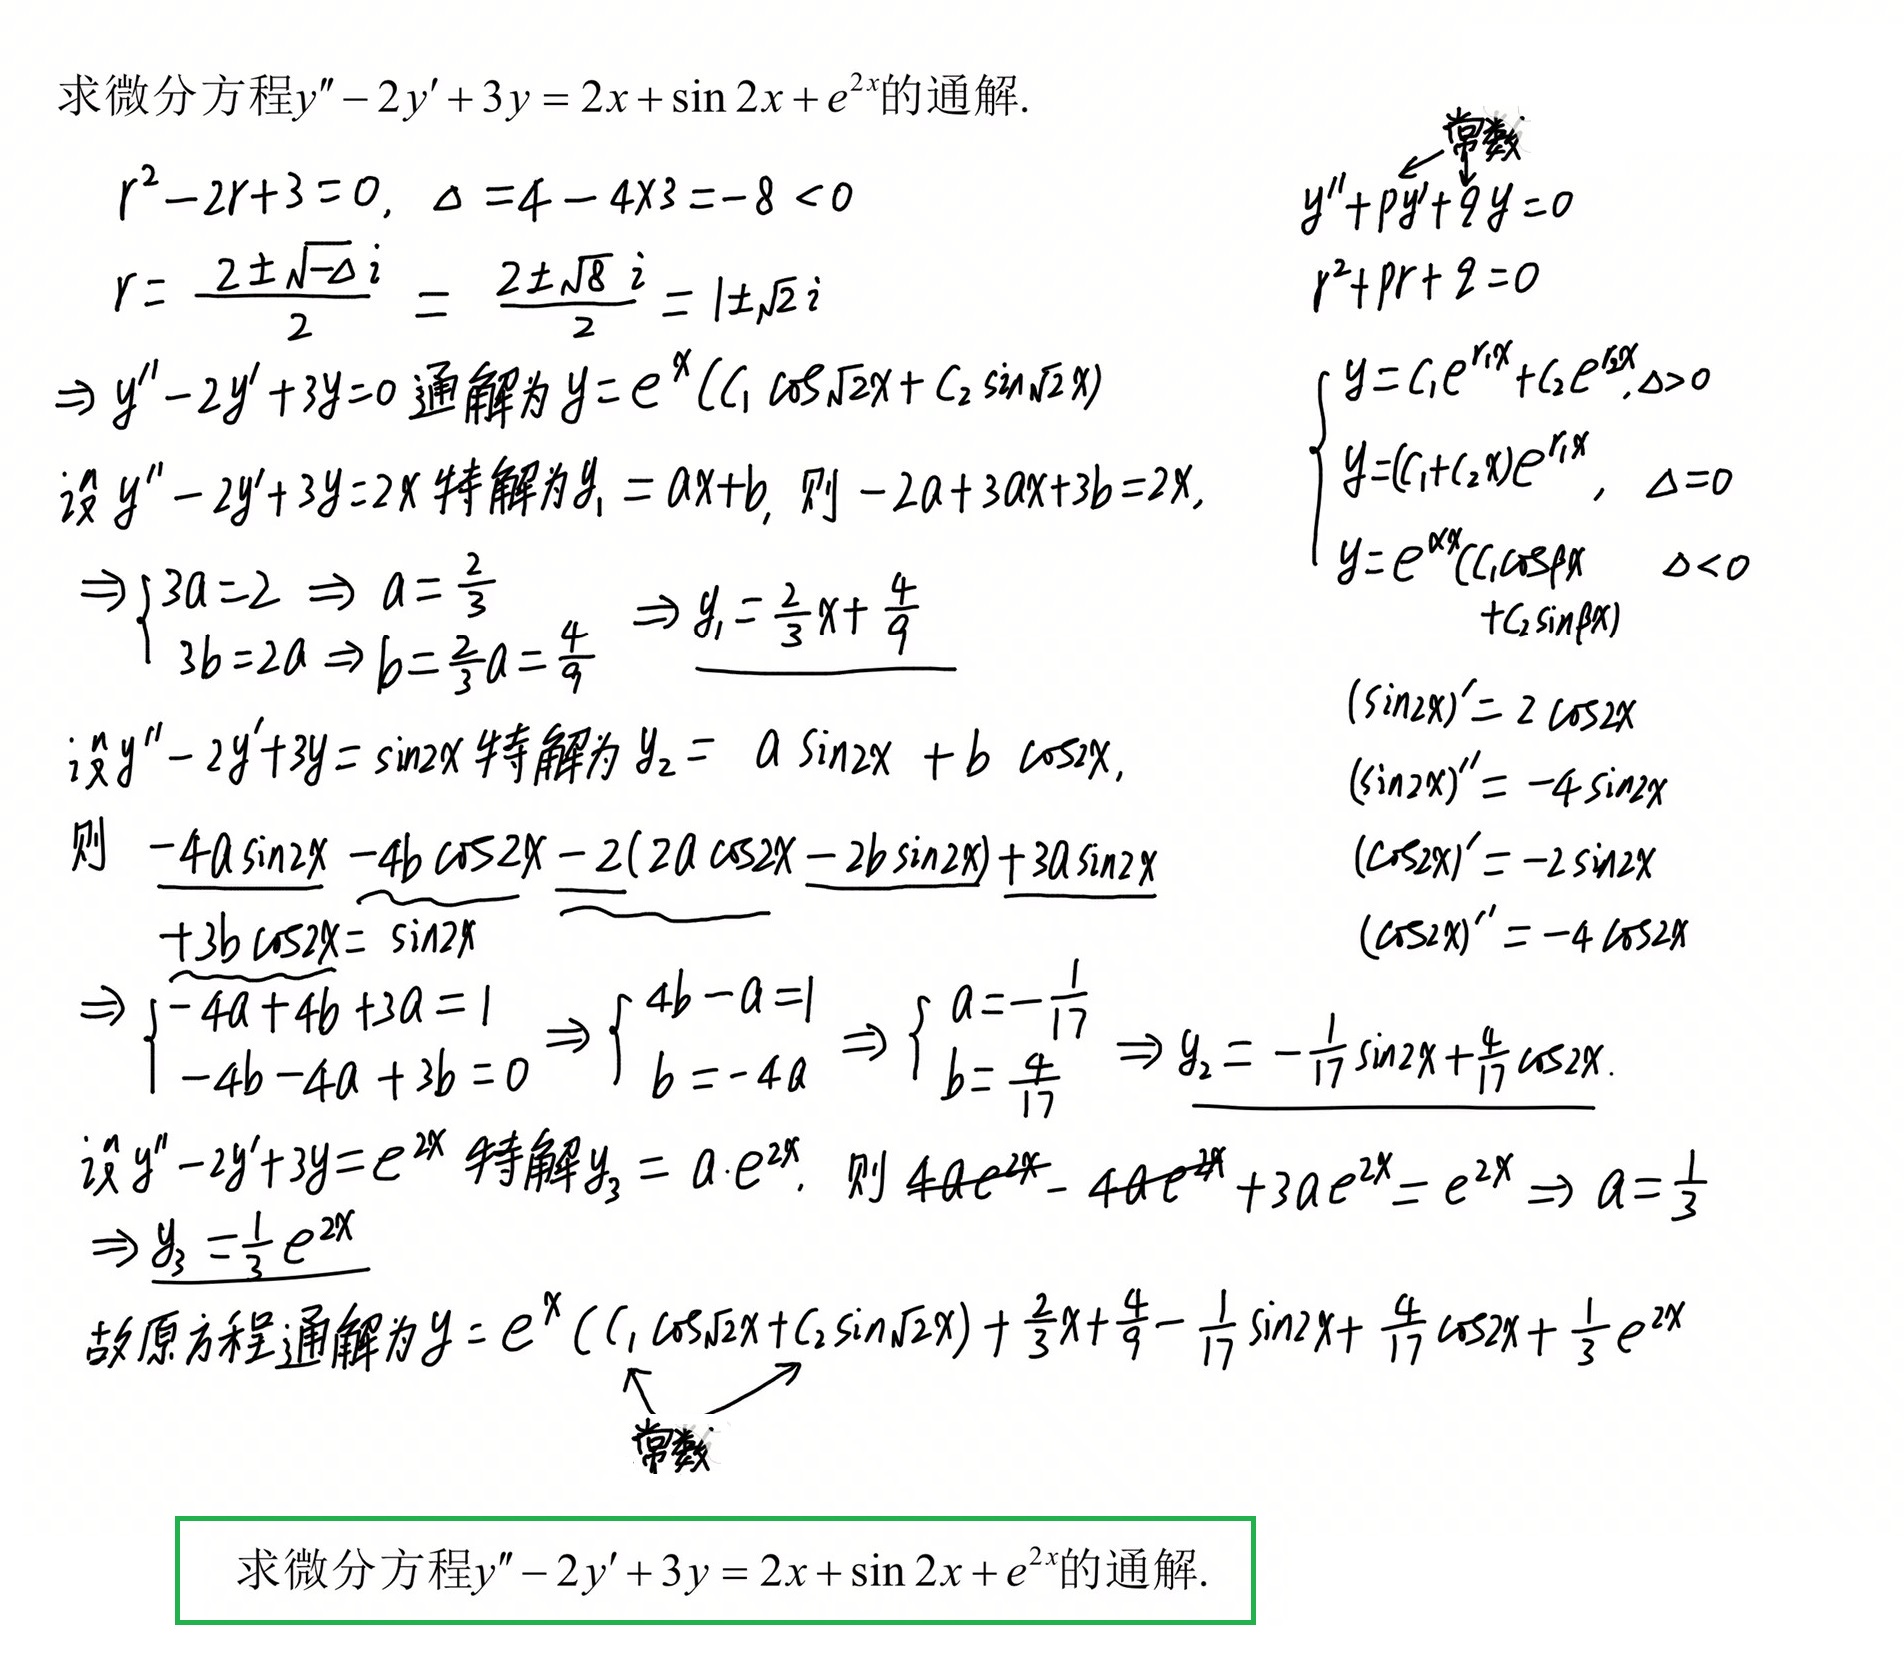 求微分方程y″−2y′+3y=2x+sin 2x+e^{2x}的通解.
r²−2r+3=0, Δ=4−4×3=−8<0
r=\frac{2±√-Δ i}{2}=\frac{2±√8 i}{2}=1±√2 i
⇒y″−2y′+3y=0通解为y=e^x(C₁cos√2x+C₂sin√2x)
设y″−2y′+3y=2x特解为y₁=ax+b, 则−2a+3ax+3b=2x,
⇒{3a=2⇒a=\frac{2}{3}
3b=2a⇒b=\frac{2}{3}a=\frac{4}{9}
⇒y₁=\frac{2}{3}x+\frac{4}{9}
设y″−2y′+3y=sin2x特解为y₂= a sin2x +b cos2x,
则 −4a sin2x −4b cos2x −2(2a cos2x −2b sin2x)+3a sin2x
+3b cos2x= sin2x
⇒{−4a+4b+3a=1
−4b−4a+3b=0
⇒{4b−a=1
b=−4a
⇒{a=−\frac{1}{17}
b=\frac{4}{17}
⇒y₂=−\frac{1}{17}sin2x+\frac{4}{17}cos2x.
设y″−2y′+3y=e^{2x}特解y₃=a·e^{2x}. 则4ae^{2x}−4ae^{2x}+3ae^{2x}=e^{2x}⇒a=\frac{1}{3}
⇒y₃=\frac{1}{3}e^{2x}
故原方程通解为y=e^x(C₁cos√2x+C₂sin√2x)+\frac{2}{3}x+\frac{4}{9}−\frac{1}{17}sin2x+\frac{4}{17}cos2x+\frac{1}{3}e^{2x}
常数
常数
y″+py′+qy=0
r²+pr+q=0
{y=C₁e^{r₁x}+C₂e^{r₂x}, Δ>0
y=(C₁+C₂x)e^{r₁x}, Δ=0
y=e^{αx}(C₁cosβx Δ<0
+C₂sinβx)
(sin2x)′=2cos2x
(sin2x)″=−4sin2x
(cos2x)′=−2sin2x
(cos2x)″=−4cos2x
求微分方程y″−2y′+3y=2x+sin 2x+e^{2x}的通解.